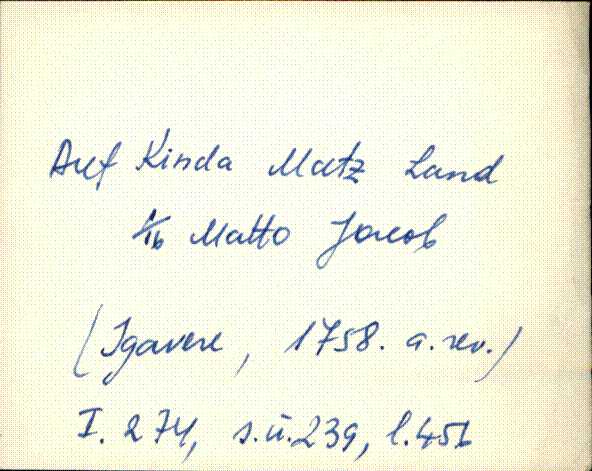 Auf Kinda Matz Land
1/16 Matto Jacob
(Igavere, 1758. a. rev.)
I. 274, s.ü. 239, l. 456